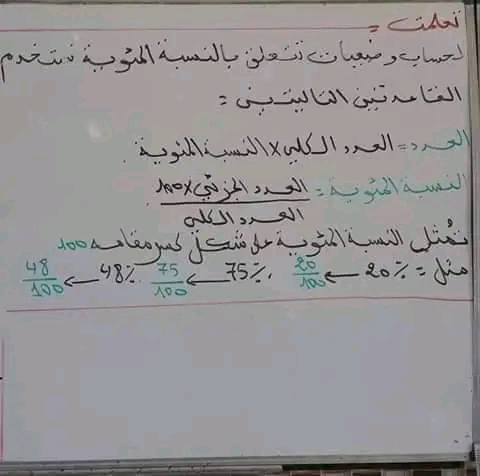 تعلمت =
لحساب وضعيات تتعلق بالنسبة المئوية نستخدم
القاعدتين التاليتين =
العدد = العدد الكلي × النسبة المئوية
النسبة المئوية = العدد الجزئي × 100 / العدد الكلي
تُمثل النسبة المئوية على شكل كسر مقامه 100
مثل = 20% ← 20/100 ، 75% ← 75/100 ، 48% ← 48/100